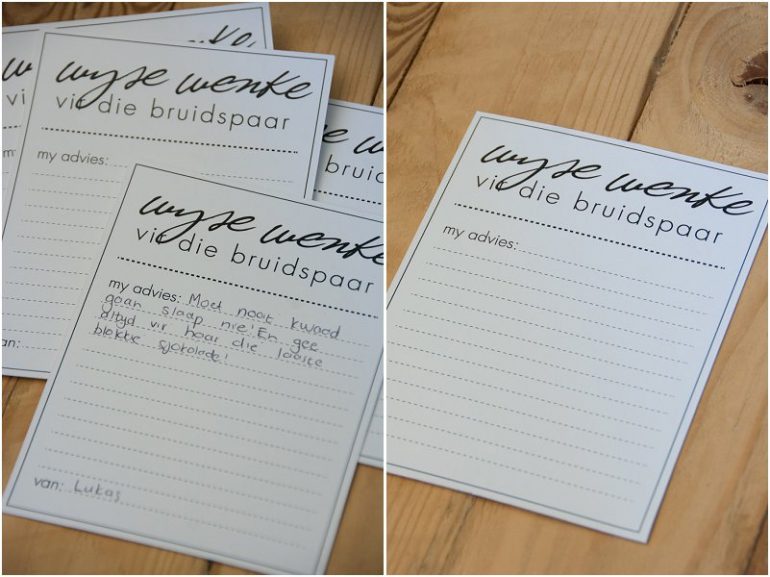 wyse wenke
vir die bruidspaar
my advies:
an:
wyse wenke
vir die bruidspaar
my advies: Moet nooit kwaad
gaan slaap nie! En gee
altyd vir haar die laaste
blokkie sjokolade!
van: Lukas
wyse wenke
vir die bruidspaar
my advies: